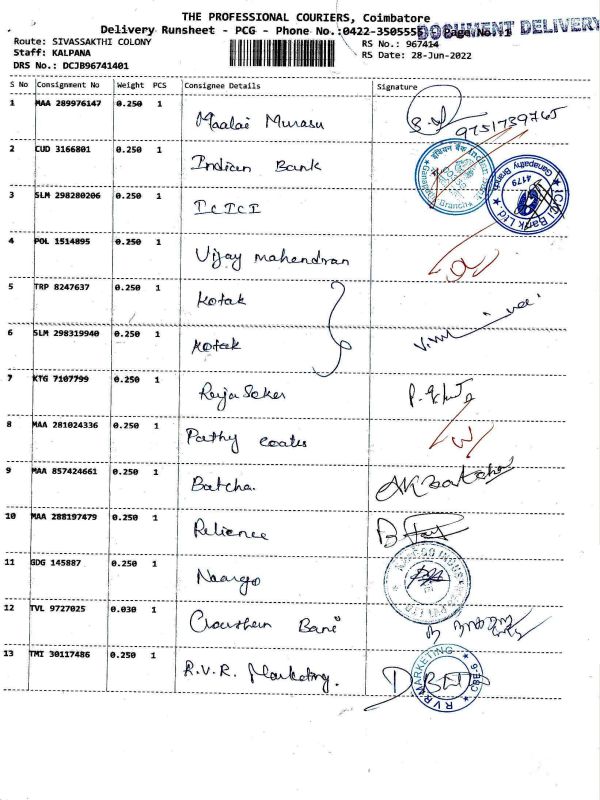 THE PROFESSIONAL COURIERS, Coimbatore
Delivery Runsheet - PCG - Phone No.:0422-3505555 Page No. 1
DOCUMENT DELIVERY
Route: SIVASSAKTHI COLONY RS No.: 967414
Staff: KALPANA RS Date: 28-Jun-2022
DRS No.: DCJB96741401
S No Consignment No Weight PCS Consignee Details Signature
1 MAA 289976147 0.250 1 Maalai Murasu 9751739765
2 CUD 3166801 0.250 1 Indian Bank
3 SLM 298280206 0.250 1 ICICI
ICICI Bank Ltd. Ganapathy Branch 4179
4 POL 1514895 0.250 1 Vijay mahendran
5 TRP 8247637 0.250 1 Kotak
6 SLM 298319940 0.250 1 Kotak
7 KTG 7107799 0.250 1 Raja Seker
8 MAA 281024336 0.250 1 Pathy coats
9 MAA 857424661 0.250 1 Batcha. AK Batcha
10 MAA 288197479 0.250 1 Relience
11 GDG 145887 0.250 1 Naargo
12 TVL 9727025 0.030 1
13 TMI 30117486 0.250 1 R.V.R. Marketing.
RVR MARKETING CBE-6